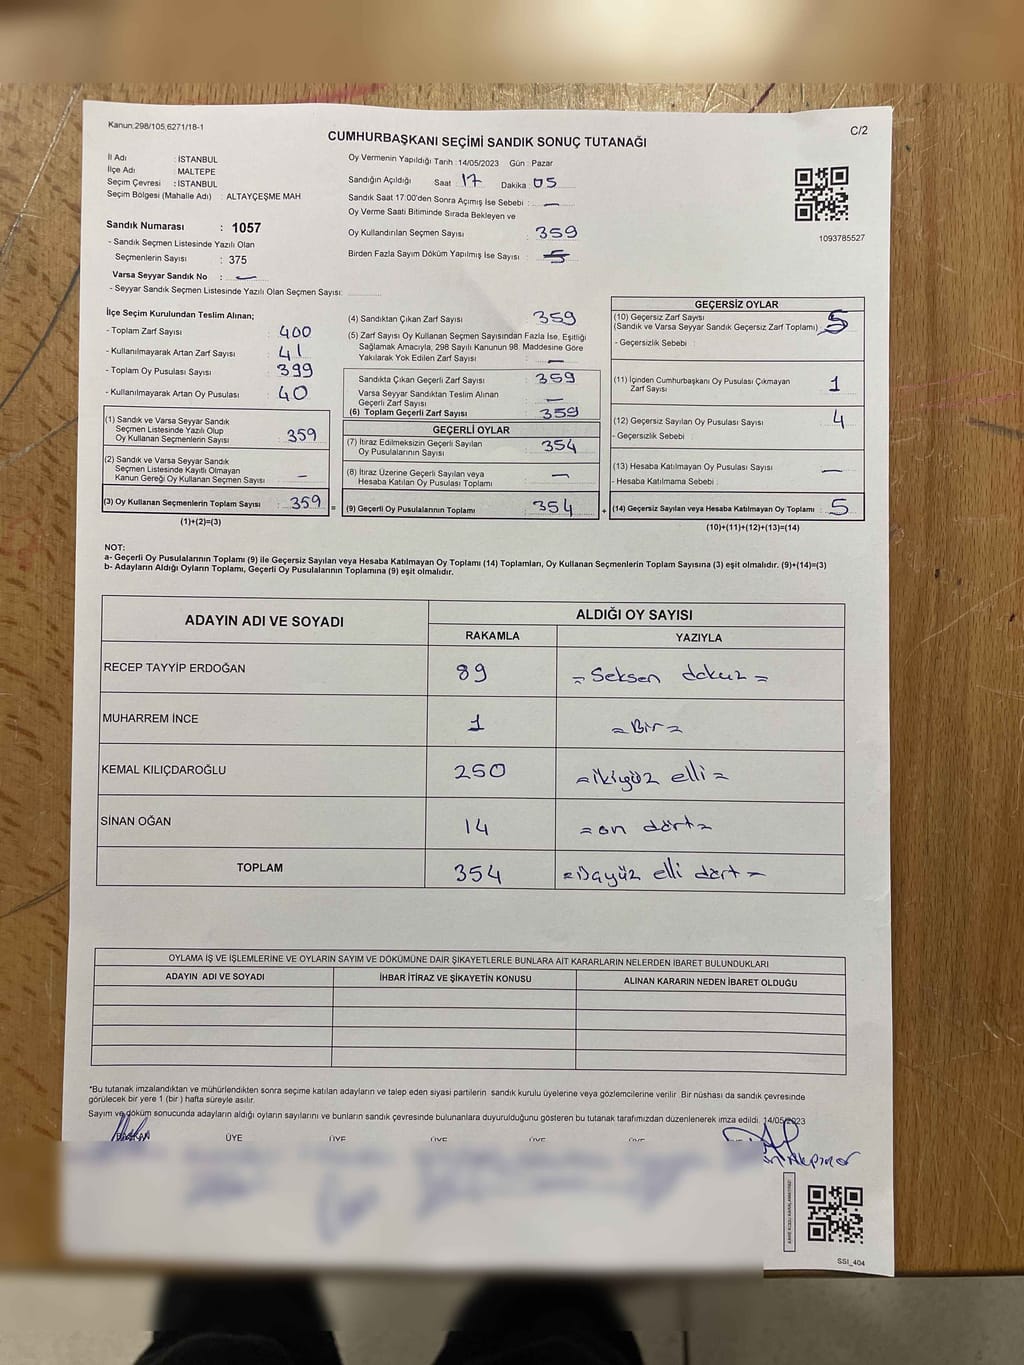 Kanun;298/105;6271/18-1
C/2
CUMHURBAŞKANI SEÇİMİ SANDIK SONUÇ TUTANAĞI
İl Adı : İSTANBUL
İlçe Adı : MALTEPE
Seçim Çevresi : İSTANBUL
Seçim Bölgesi (Mahalle Adı) : ALTAYÇEŞME MAH
Sandık Numarası : 1057
- Sandık Seçmen Listesinde Yazılı Olan
Seçmenlerin Sayısı : 375
Varsa Seyyar Sandık No : —
- Seyyar Sandık Seçmen Listesinde Yazılı Olan Seçmen Sayısı:
Oy Vermenin Yapıldığı Tarih :14/05/2023 Gün : Pazar
Sandığın Açıldığı Saat 17 Dakika : 05
Sandık Saat 17:00'den Sonra Açımış İse Sebebi : —
Oy Verme Saati Bitiminde Sırada Bekleyen ve
Oy Kullandırılan Seçmen Sayısı 359
Birden Fazla Sayım Döküm Yapılmış İse Sayısı :
1093785527
İlçe Seçim Kurulundan Teslim Alınan;
- Toplam Zarf Sayısı : 400
- Kullanılmayarak Artan Zarf Sayısı : 41
- Toplam Oy Pusulası Sayısı : 399
- Kullanılmayarak Artan Oy Pusulası : 40
(1) Sandık ve Varsa Seyyar Sandık
Seçmen Listesinde Yazılı Olup
Oy Kullanan Seçmenlerin Sayısı : 359
(2) Sandık ve Varsa Seyyar Sandık
Seçmen Listesinde Kayıtlı Olmayan
Kanun Gereği Oy Kullanan Seçmen Sayısı : —
(3) Oy Kullanan Seçmenlerin Toplam Sayısı : 359 =
(1)+(2)=(3)
(4) Sandıktan Çıkan Zarf Sayısı : 359
(5) Zarf Sayısı Oy Kullanan Seçmen Sayısından Fazla İse, Eşitliği
Sağlamak Amacıyla; 298 Sayılı Kanunun 98. Maddesine Göre
Yakılarak Yok Edilen Zarf Sayısı : —
Sandıkta Çıkan Geçerli Zarf Sayısı : 359
Varsa Seyyar Sandıktan Teslim Alınan
Geçerli Zarf Sayısı : —
(6) Toplam Geçerli Zarf Sayısı : 359
GEÇERLİ OYLAR
(7) İtiraz Edilmeksizin Geçerli Sayılan
Oy Pusulalarının Sayısı : 354
(8) İtiraz Üzerine Geçerli Sayılan veya
Hesaba Katılan Oy Pusulası Toplamı : —
(9) Geçerli Oy Pusulalarının Toplamı : 354 +
GEÇERSİZ OYLAR
(10) Geçersiz Zarf Sayısı
(Sandık ve Varsa Seyyar Sandık Geçersiz Zarf Toplamı)
- Geçersizlik Sebebi :
(11) İçinden Cumhurbaşkanı Oy Pusulası Çıkmayan
Zarf Sayısı : 1
(12) Geçersiz Sayılan Oy Pusulası Sayısı : 4
- Geçersizlik Sebebi :
(13) Hesaba Katılmayan Oy Pusulası Sayısı : —
- Hesaba Katılmama Sebebi :
(14) Geçersiz Sayılan veya Hesaba Katılmayan Oy Toplamı : 5
(10)+(11)+(12)+(13)=(14)
NOT:
a- Geçerli Oy Pusulalarının Toplamı (9) ile Geçersiz Sayılan veya Hesaba Katılmayan Oy Toplamı (14) Toplamları, Oy Kullanan Seçmenlerin Toplam Sayısına (3) eşit olmalıdır. (9)+(14)=(3)
b- Adayların Aldığı Oyların Toplamı, Geçerli Oy Pusulalarının Toplamına (9) eşit olmalıdır.
ADAYIN ADI VE SOYADI ALDIĞI OY SAYISI
RAKAMLA YAZIYLA
RECEP TAYYİP ERDOĞAN 89 = Seksen dokuz =
MUHARREM İNCE 1 = Bir =
KEMAL KILIÇDAROĞLU 250 = ikiyüz elli =
SİNAN OĞAN 14 = on dört =
TOPLAM 354 = Üçyüz elli dört =
OYLAMA İŞ VE İŞLEMLERİNE VE OYLARIN SAYIM VE DÖKÜMÜNE DAİR ŞİKAYETLERLE BUNLARA AİT KARARLARIN NELERDEN İBARET BULUNDUKLARI
ADAYIN ADI VE SOYADI İHBAR İTİRAZ VE ŞİKAYETİN KONUSU ALINAN KARARIN NEDEN İBARET OLDUĞU
*Bu tutanak imzalandıktan ve mühürlendikten sonra seçime katılan adayların ve talep eden siyasi partilerin sandık kurulu üyelerine veya gözlemcilerine verilir. Bir nüshası da sandık çevresinde
görülecek bir yere 1 (bir ) hafta süreyle asılır.
Sayım ve döküm sonucunda adayların aldığı oyların sayılarını ve bunların sandık çevresinde bulunanlara duyurulduğunu gösteren bu tutanak tarafımızdan düzenlenerek imza edildi. 14/05/2023
BAŞKAN ÜYE ÜYE ÜYE ÜYE ÜYE
SSI_404